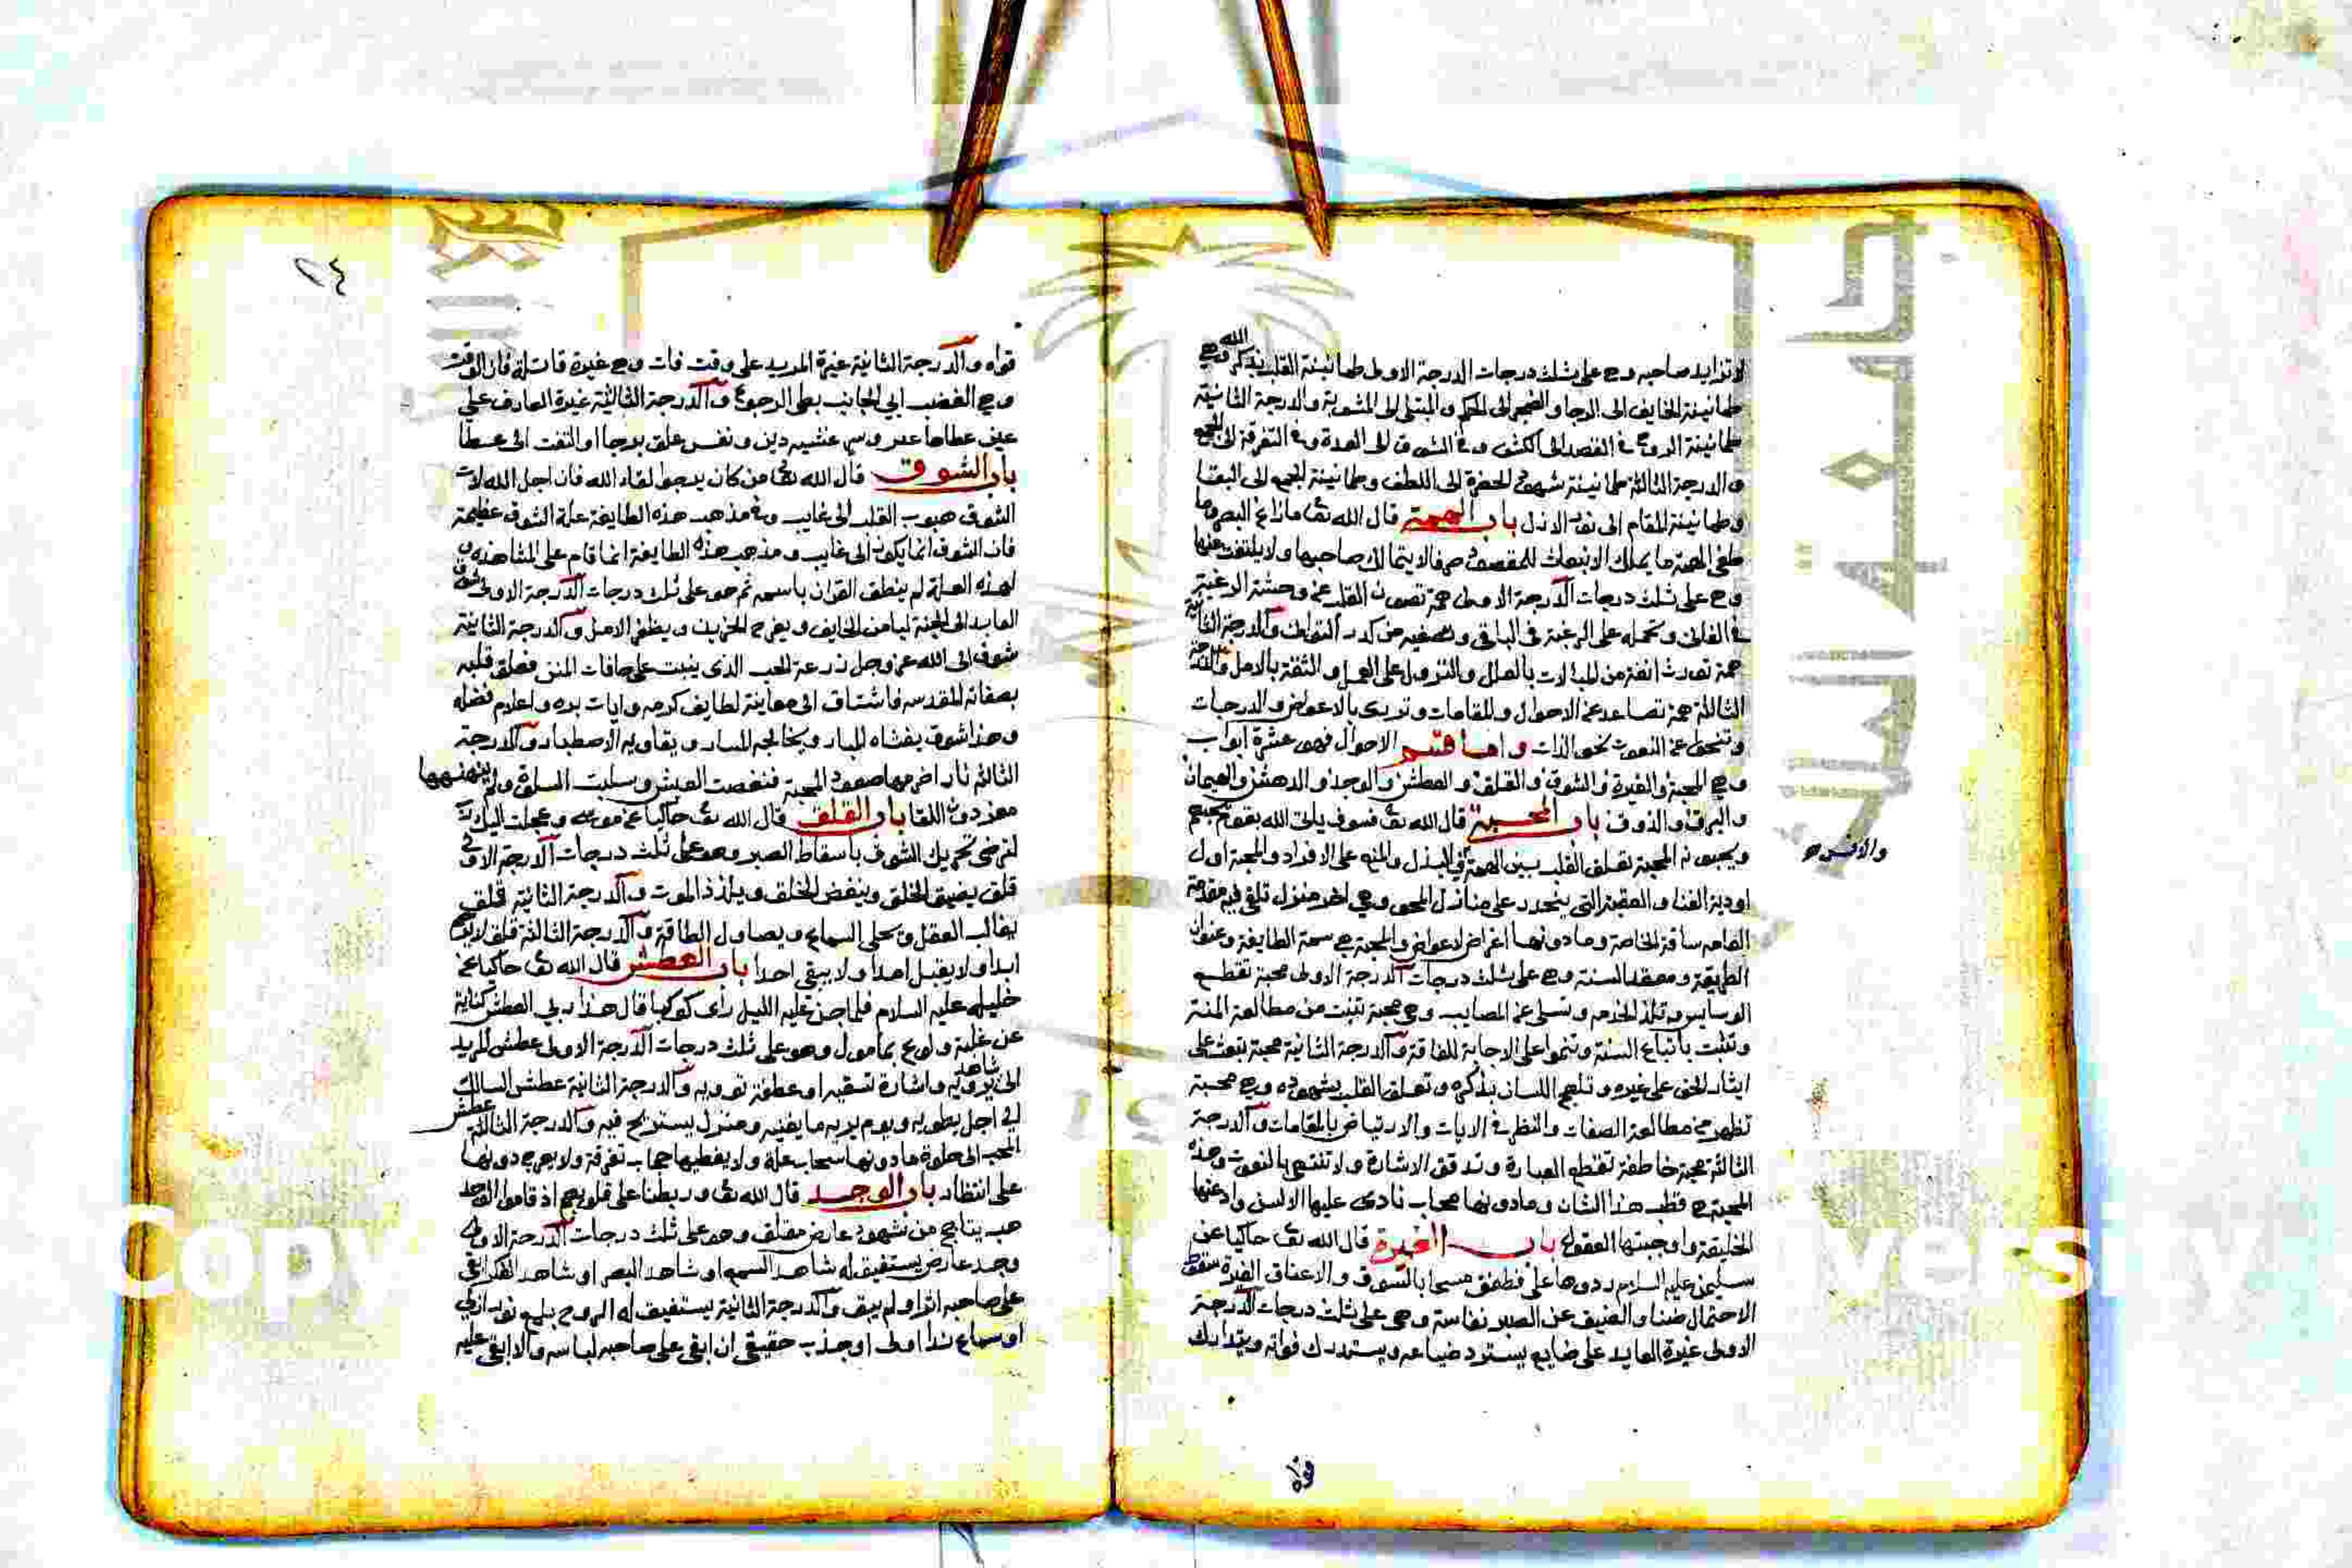 لا تزايد صاحبه وهي على ثلث درجات الدرجة الاولى طمانينة القلب بذكر الله وهي
طمانينة الخايف الى الرجا والضجر الى الحكم والمبتلى الى المثوبة والدرجة الثانية
طمانينة الروح في القصد الى الكشف وفي الشوق الى العدة وفي التفرقة الى الجمع
والدرجة الثالثة طمانينة شهود الحضرة الى اللطف وطمانينة الجمع الى البقا
وطمانينة المقام الى نور الازل باب الهمة قال الله تعا مازاغ البصر وما
طغى الهمة ما يملك الانبعاث للمقصود صرفا لا يتمالك صاحبها ولا يلتفت عنها
وهي على ثلث درجات الدرجة الاولى همة تصون القلب عن وحشة الرغبة
في الفانى وتحمله على الرغبة في الباقي وتصفيه من كدر التوانى والدرجة الثانية
همة تورث انفة من المبالات بالعلل والنزول على العمل والثقة بالامل والدرجة
الثالثة همة تصاعد عن الاحوال والمقامات وتزرى بالاعواض والدرجات
وتنحو عن النعوت نحو الذات واما قسم الاحوال فهو عشرة ابواب
وهي المحبة والغيرة والشوق والقلق والعطش والوجد والدهش والهيمان
والبرق والذوق باب المحبة قال الله تعا فسوف ياتى الله بقوم يحبهم
ويحبونه المحبة تعلق القلب بين الهمة في البذل والمنع على الافراد والمحبة اول
والانس
اودية الفنا والعقبة التي ينحدر على منازل المحو وهي اخر منزل تلقى فيه مقدمة
العامه ساقة الخاصة وما دونها اغراض لاعواض والمحبة هي سمة الطايفة وعنوان
الطريقة ومعقد السنة وهي على ثلث درجات الدرجة الاولى محبة تقطع
الوساوس وتلذ الخدمه وتسلى عن المصايب وهي محبة تنبت من مطالعة المنة
وتثبت باتباع السنة وتنموا على الاجابة للفاقة والدرجة الثانية محبة تبعث على
ايثار الحق على غيره وتلهج اللسان بذكره وتعلق القلب بشهوده وهي محبة
تظهر من مطالعة الصفات والنظر في الايات والارتياض بالمقامات والدرجة
الثالثة محبة خاطفة تقطع العبارة وتدقق الاشارة ولا تنتهي بالنعوت وهذه
المحبة هي قطب هذا الشان وما دونها محاب نادى عليها الالسن وادعتها
الخليقة واوجبتها العقول باب الغيرة قال الله تعا حاكيا عن
سليمن عليه السلام ردوها على فطفق مسحا بالسوق والاعناق الغيرة سقوط
الاحتمال ضنا والضيق عن الصبر نفاسة وهي على ثلث درجات الدرجة
الاولى غيرة العابد على ضايع يسترد ضياعه ويستدرك فواته ويتدارك
قواه
قواه والدرجة الثانية غيرة المريد على وقت فات وهي غيرة قاتلة فان الوقت
وحي الغضب ابي الجانب بطى الرجوع والدرجة الثالثة غيرة العارف على
عين غطاها غين وسر غشيه رين ونفس علق برجا او التفت الى عطا
باب الشوق قال الله تعا من كان يرجوا لقاء الله فان اجل الله لات
الشوق هبوب القلب الى غايب وفي مذهب هذه الطايفة علة الشوق عظيمة
فان الشوق انما يكون الى غايب ومذهب هذه الطايفة انما قام على المشاهدة و
لهذه العلة لم ينطق القران باسمه ثم هو على ثلث درجات الدرجة الاولى شوق
العابد الى الجنة ليامن الخايف ويفرح الحزين ويظفر الامل والدرجة الثانية
شوق الى الله عز وجل زرعة الحب الذى ينبت على حافات المنن فعلق قلبه
بصفاته المقدسه فاشتاق الى معاينة لطايف كرمه وايات بره واعلام فضله
وهذا شوق يغشاه المبار ويخالجه المسار ويقاويه الاصطبار والدرجة
الثالثة نار اضرمها صفو المحبة فنغصت العيش وسلبت السلوة ولم ينهنهها
معز دون اللقا باب القلق قال الله تعا حاكيا عن موسى وعجلت اليك رب
لترضى تحريك الشوق باسقاط الصبر وهو على ثلث درجات الدرجة الاولى
قلق يضيق الخلق ويبغض الخلق ويلذذ الموت والدرجة الثانية قلق
يغالب العقل ويحلى السماع ويصاول الطاقة والدرجة الثالثة قلق لا يرحم
ابدا ولا يقبل امدا ولا يبقى احدا باب العطش قال الله تعا حاكيا عن
خليله عليه السلام فلما جن عليه الليل رأى كوكبا قال هذا ربي العطش كناية
عن غلبة ولوع بمامول وهو على ثلث درجات الدرجة الاولى عطش المريد
الى شاهد يرويه واشارة تسقيه او عطفة ترويه والدرجة الثانية عطش السالك
الى اجل يطويه ويوم يريه ما يغنيه ومنزل يستريح فيه والدرجة الثالثة عطش
المحب الى جلوة ما دونها سحاب علة ولا يغطيها حجاب تفرقة ولا يعرج دونها
على انتظار باب الوجد قال الله تعا وربطنا على قلوبهم اذ قاموا الوجد
لهب يتاجج من شهود عارض مقلق وهو على ثلث درجات الدرجة الاولى
وجد عارض يستفيق له شاهد السمع او شاهد البصر او شاهد الفكر ابقى
على صاحبه اثرا ولم يبق والدرجة الثانية يستفيق له الروح بلمع نور ازلي
او سماع ندا اولى او جذب حقيقي ان ابقى على صاحبه لباسه والا ابقى عليه